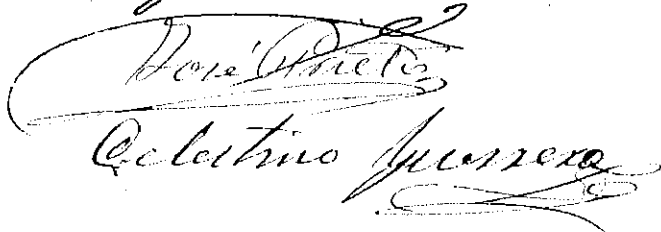 José Prieto
Celestino Guerrero